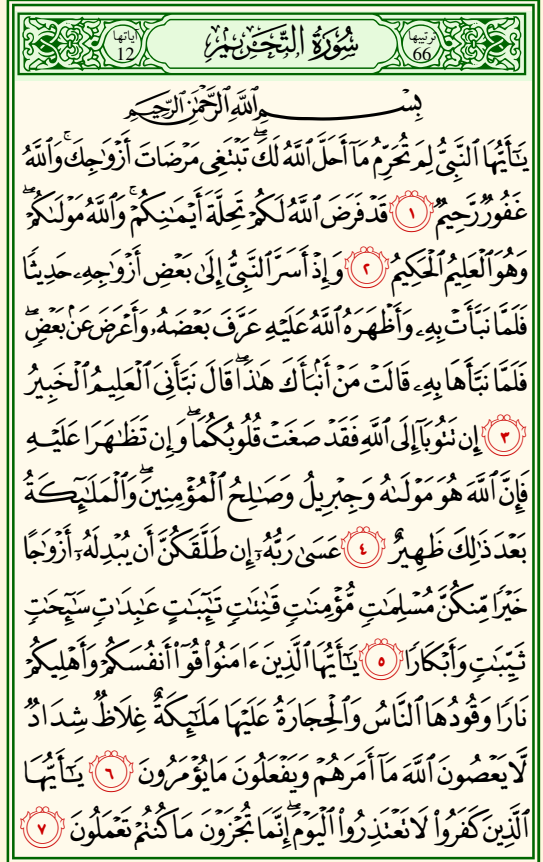 ترتيبها 66 سُورَةُ التَّحْرِيمِ آياتها 12
بِسْمِ ٱللَّهِ ٱلرَّحْمَٰنِ ٱلرَّحِيمِ
يَٰٓأَيُّهَا ٱلنَّبِىُّ لِمَ تُحَرِّمُ مَآ أَحَلَّ ٱللَّهُ لَكَ ۖ تَبْتَغِى مَرْضَاتَ أَزْوَٰجِكَ ۚ وَٱللَّهُ
غَفُورٌ رَّحِيمٌ ١ قَدْ فَرَضَ ٱللَّهُ لَكُمْ تَحِلَّةَ أَيْمَٰنِكُمْ ۚ وَٱللَّهُ مَوْلَىٰكُمْ ۖ
وَهُوَ ٱلْعَلِيمُ ٱلْحَكِيمُ ٢ وَإِذْ أَسَرَّ ٱلنَّبِىُّ إِلَىٰ بَعْضِ أَزْوَٰجِهِۦ حَدِيثًا
فَلَمَّا نَبَّأَتْ بِهِۦ وَأَظْهَرَهُ ٱللَّهُ عَلَيْهِ عَرَّفَ بَعْضَهُۥ وَأَعْرَضَ عَنۢ بَعْضٍ ۖ
فَلَمَّا نَبَّأَهَا بِهِۦ قَالَتْ مَنْ أَنۢبَأَكَ هَٰذَا ۖ قَالَ نَبَّأَنِىَ ٱلْعَلِيمُ ٱلْخَبِيرُ
٣ إِن تَتُوبَآ إِلَى ٱللَّهِ فَقَدْ صَغَتْ قُلُوبُكُمَا ۖ وَإِن تَظَٰهَرَا عَلَيْهِ
فَإِنَّ ٱللَّهَ هُوَ مَوْلَىٰهُ وَجِبْرِيلُ وَصَٰلِحُ ٱلْمُؤْمِنِينَ ۖ وَٱلْمَلَٰٓئِكَةُ
بَعْدَ ذَٰلِكَ ظَهِيرٌ ٤ عَسَىٰ رَبُّهُۥٓ إِن طَلَّقَكُنَّ أَن يُبْدِلَهُۥٓ أَزْوَٰجًا
خَيْرًا مِّنكُنَّ مُسْلِمَٰتٍ مُّؤْمِنَٰتٍ قَٰنِتَٰتٍ تَٰٓئِبَٰتٍ عَٰبِدَٰتٍ سَٰٓئِحَٰتٍ
ثَيِّبَٰتٍ وَأَبْكَارًا ٥ يَٰٓأَيُّهَا ٱلَّذِينَ ءَامَنُوا۟ قُوٓا۟ أَنفُسَكُمْ وَأَهْلِيكُمْ
نَارًا وَقُودُهَا ٱلنَّاسُ وَٱلْحِجَارَةُ عَلَيْهَا مَلَٰٓئِكَةٌ غِلَاظٌ شِدَادٌ
لَّا يَعْصُونَ ٱللَّهَ مَآ أَمَرَهُمْ وَيَفْعَلُونَ مَا يُؤْمَرُونَ ٦ يَٰٓأَيُّهَا
ٱلَّذِينَ كَفَرُوا۟ لَا تَعْتَذِرُوا۟ ٱلْيَوْمَ ۖ إِنَّمَا تُجْزَوْنَ مَا كُنتُمْ تَعْمَلُونَ ٧